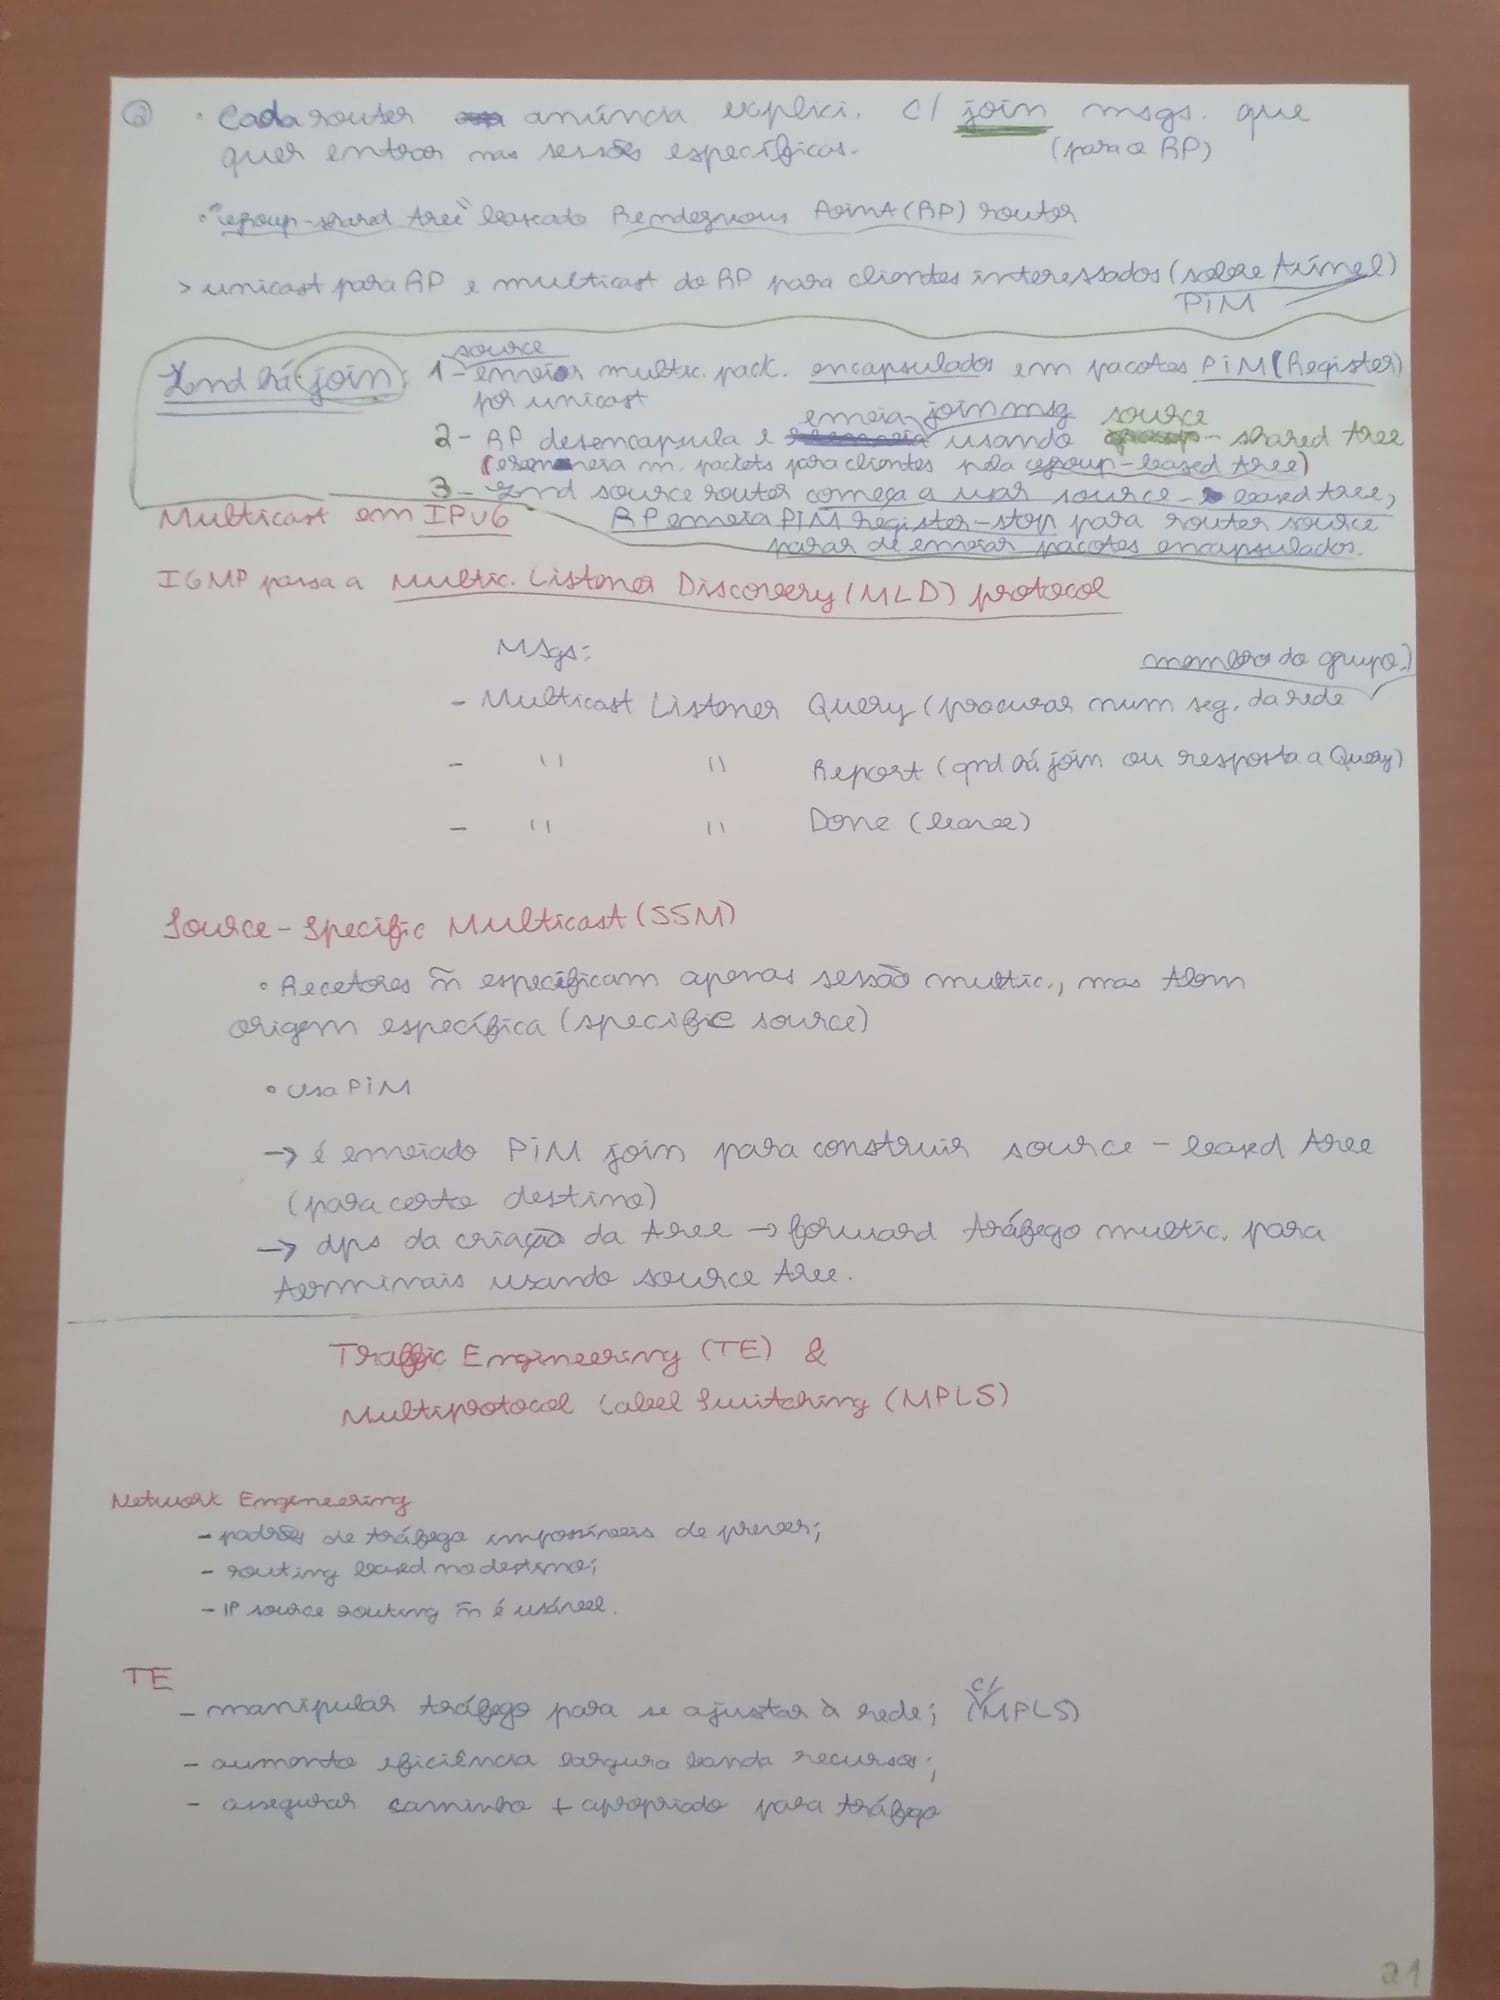 ② • Cada router anúncia explici. c/ join msgs. que
quer entrar nas sessões específicas. (para o RP)
• "group-shared tree" baseado Rendezvous Point (RP) router
> unicast para RP e multicast do RP para clientes interessados (sobre túnnel)
PiM
Qnd há join: 1 - source enviar multic. pack. encapsulados em pacotes PiM (Register)
por unicast
2 - RP desencapsula e envia join msg usando source - shared tree
(e reenvia m. packets para clientes pela group-based tree)
3 - Qnd source router começa a usar source - based tree,
RP envia PiM Register-stop para router source
parar de enviar pacotes encapsulados.
Multicast em IPv6
IGMP passa a Multic. Listener Discovery (MLD) protocol
Msgs:
membro do grupo)
- Multicast Listener Query (procurar num seg. da rede
- " " Report (qnd há join ou resposta a Query)
- " " Done (leave)
Source - Specific Multicast (SSM)
• Recetores ñ especificam apenas sessão multic., mas tbem
origem específica (specific source)
• Usa PiM
→ é enviado PiM join para construir source - based tree
(para certo destino)
→ dps da criação da tree → forward tráfego multic. para
terminais usando source tree.
Traffic Engineering (TE) &
Multiprotocol Label Switching (MPLS)
Network Engineering
- padrões de tráfego impossíveis de prever;
- routing based no destino;
- IP source routing ñ é usável.
TE
- manipular tráfego para se ajustar à rede; (c/ MPLS)
- aumento eficiência largura banda recursos;
- assegurar caminho + apropriado para tráfego
21